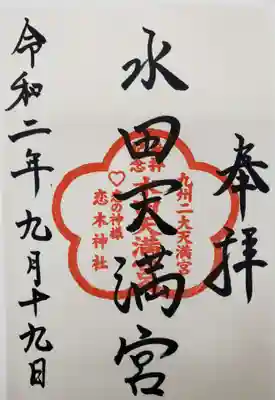 奉拝
九州二大天満宮
水田天満宮
の神様
恋木神社
令和二年九月十九日